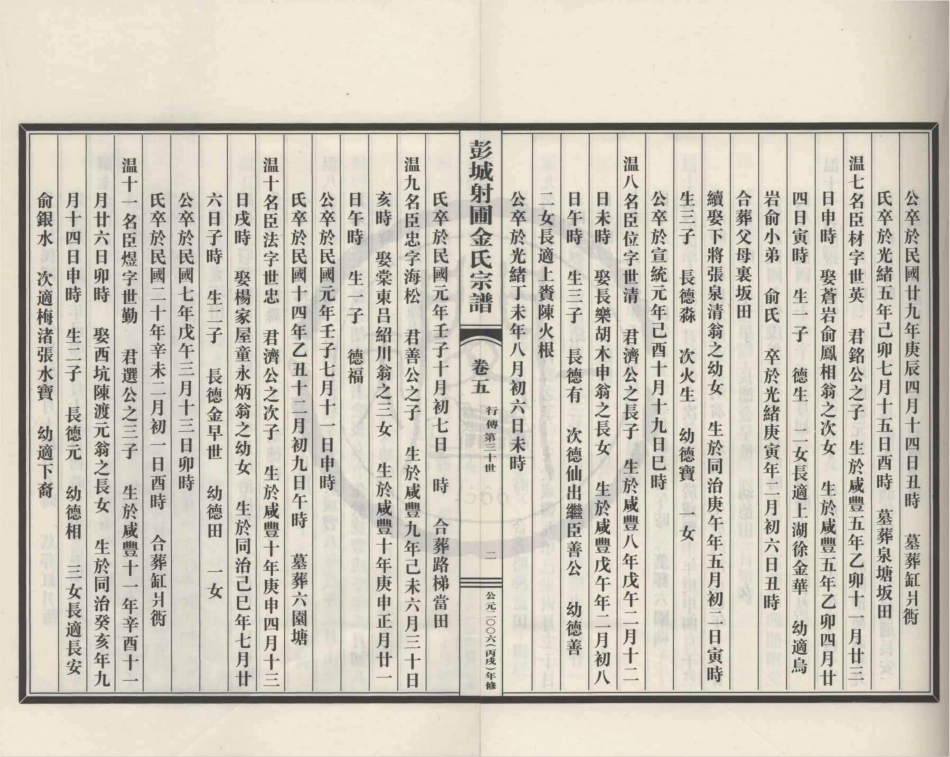 公卒於民國廿九年庚辰四月十四日丑時　墓葬缸爿衖
氏卒於光緒五年己卯七月十五日酉時　墓葬泉塘坂田
温七名臣材字世英　君銘公之子　生於咸豐五年乙卯十一月廿三
日申時　娶蒼岩俞鳳相翁之次女　生於咸豐五年乙卯四月廿
四日寅時　生一子　德生　二女長適上湖徐金華　幼適烏
岩俞小弟　俞氏　卒於光緒庚寅年二月初六日丑時
合葬父母裏坂田
續娶下將張泉清翁之幼女　生於同治庚午年五月初二日寅時
生三子　長德淼　次火生　幼德寶　一女
公卒於宣統元年己酉十月十九日巳時
温八名臣位字世清　君濟公之長子　生於咸豐八年戊午二月十二
日未時　娶長樂胡木申翁之長女　生於咸豐戊午年二月初八
日午時　生三子　長德有　次德仙出繼臣善公　幼德善
二女長適上賚陳火根
公卒於光緒丁未年八月初六日未時
彭城射圃金氏宗譜
卷五
行傳第三十世
二
公元二〇〇六(丙戌)年修
氏卒於民國元年壬子十月初七日　時　合葬路梯當田
温九名臣忠字海松　君善公之子　生於咸豐九年己未六月三十日
亥時　娶棠東吕紹川翁之三女　生於咸豐十年庚申正月廿一
日午時　生一子　德福
公卒於民國元年壬子七月十一日申時
氏卒於民國十四年乙丑十二月初九日午時　墓葬六園塘
温十名臣法字世忠　君濟公之次子　生於咸豐十年庚申四月十三
日戌時　娶楊家屋童永炳翁之幼女　生於同治己巳年七月廿
六日子時　生二子　長德金早世　幼德田　一女
公卒於民國七年戊午三月十三日卯時
氏卒於民國二十年辛未二月初一日酉時　合葬缸爿衖
温十一名臣煜字世勤　君選公之三子　生於咸豐十一年辛酉十一
月廿六日卯時　娶西坑陳渡元翁之長女　生於同治癸亥年九
月十四日申時　生二子　長德元　幼德相　三女長適長安
俞銀水　次適梅渚張水寶　幼適下裔